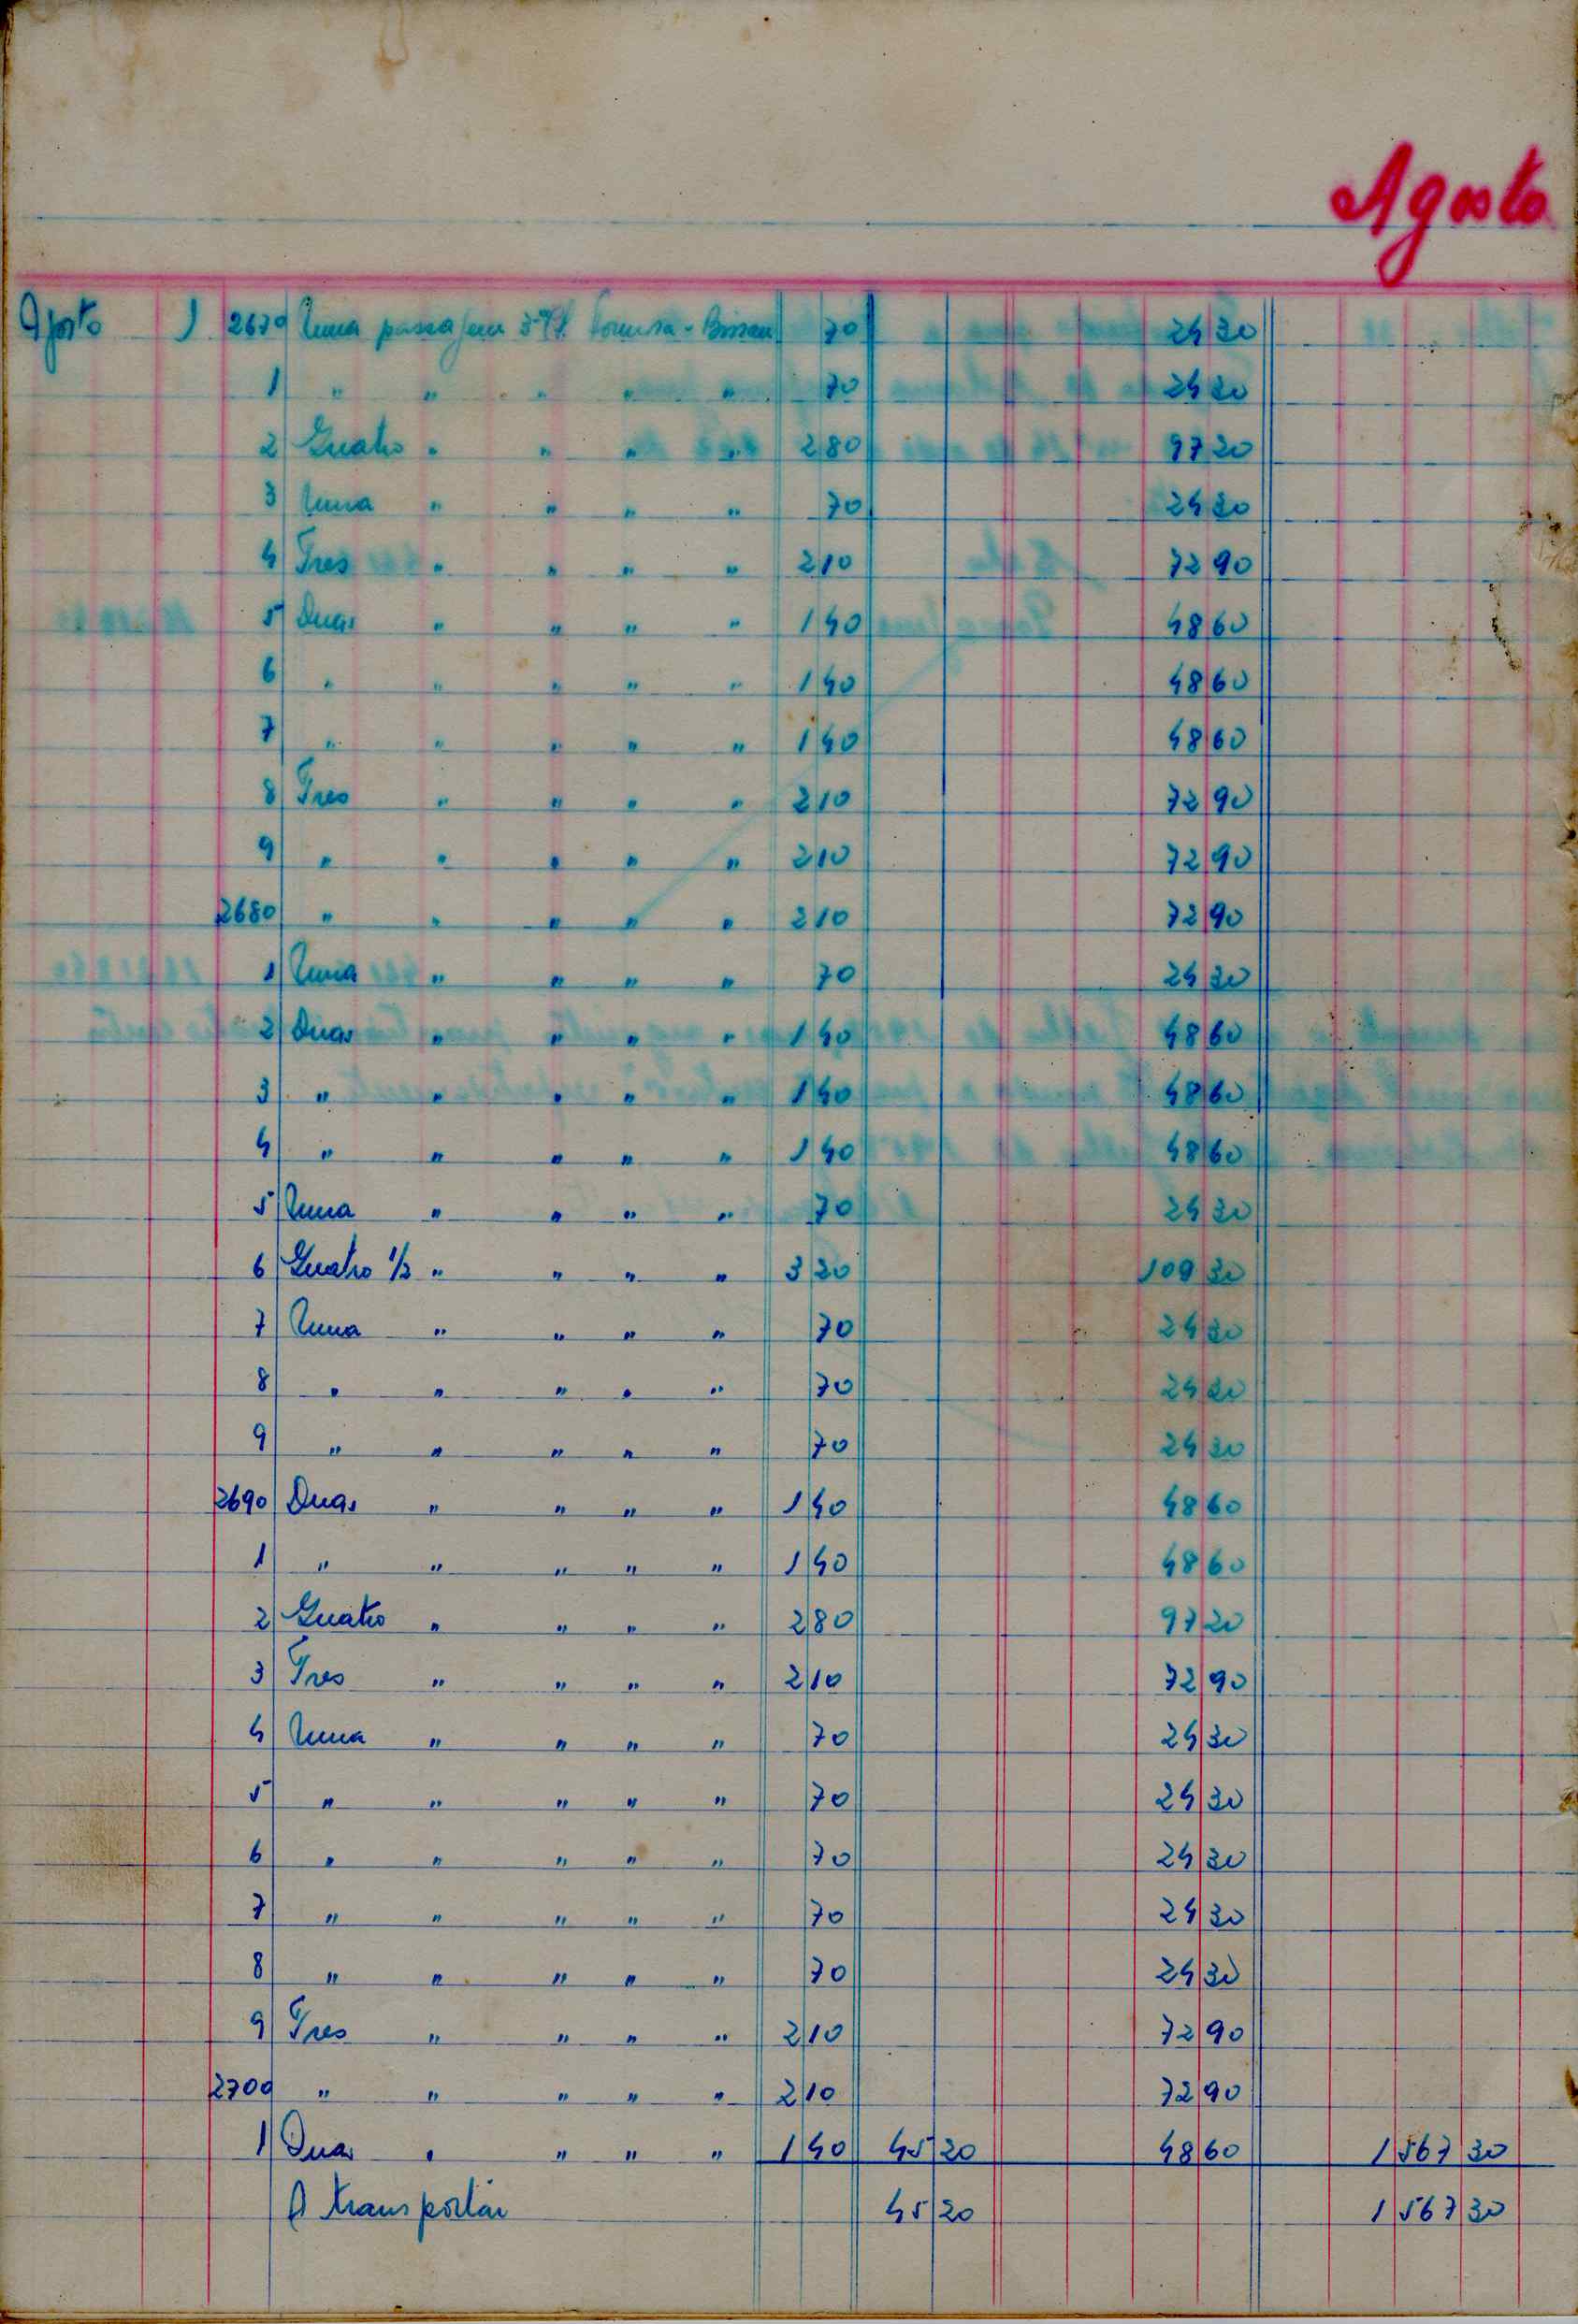 Agosto
Agosto 1 2670 Uma passagem 3ª Cl. - Bissau 70 24 30
1 " " " " " 70 24 30
2 Quatro " " " " 2 80 97 20
3 Uma " " " " 70 24 30
4 Tres " " " " 2 10 72 90
5 Duas " " " " 1 40 48 60
6 " " " " " 1 40 48 60
7 " " " " " 1 40 48 60
8 Tres " " " " 2 10 72 90
9 " " " " " 2 10 72 90
2680 " " " " " 2 10 72 90
1 Uma " " " " 70 24 30
2 Duas " " " " 1 40 48 60
3 " " " " " 1 40 48 60
4 " " " " " 1 40 48 60
5 Uma " " " " 70 24 30
6 Quatro 1/2 " " " " 3 20 109 30
7 Uma " " " " 70 24 30
8 " " " " " 70 24 30
9 " " " " " 70 24 30
2690 Duas " " " " 1 40 48 60
1 " " " " " 1 40 48 60
2 Quatro " " " " 2 80 97 20
3 Tres " " " " 2 10 72 90
4 Uma " " " " 70 24 30
5 " " " " " 70 24 30
6 " " " " " 70 24 30
7 " " " " " 70 24 30
8 " " " " " 70 24 30
9 Tres " " " " 2 10 72 90
2700 " " " " " 2 10 72 90
1 Duas " " " " 1 40 45 20 48 60 1 567 30
A transportar 45 20 1 567 30